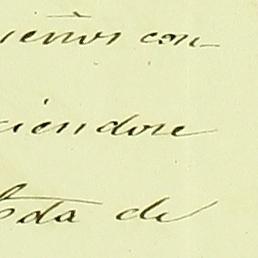 ieños con-
ciendose
da de